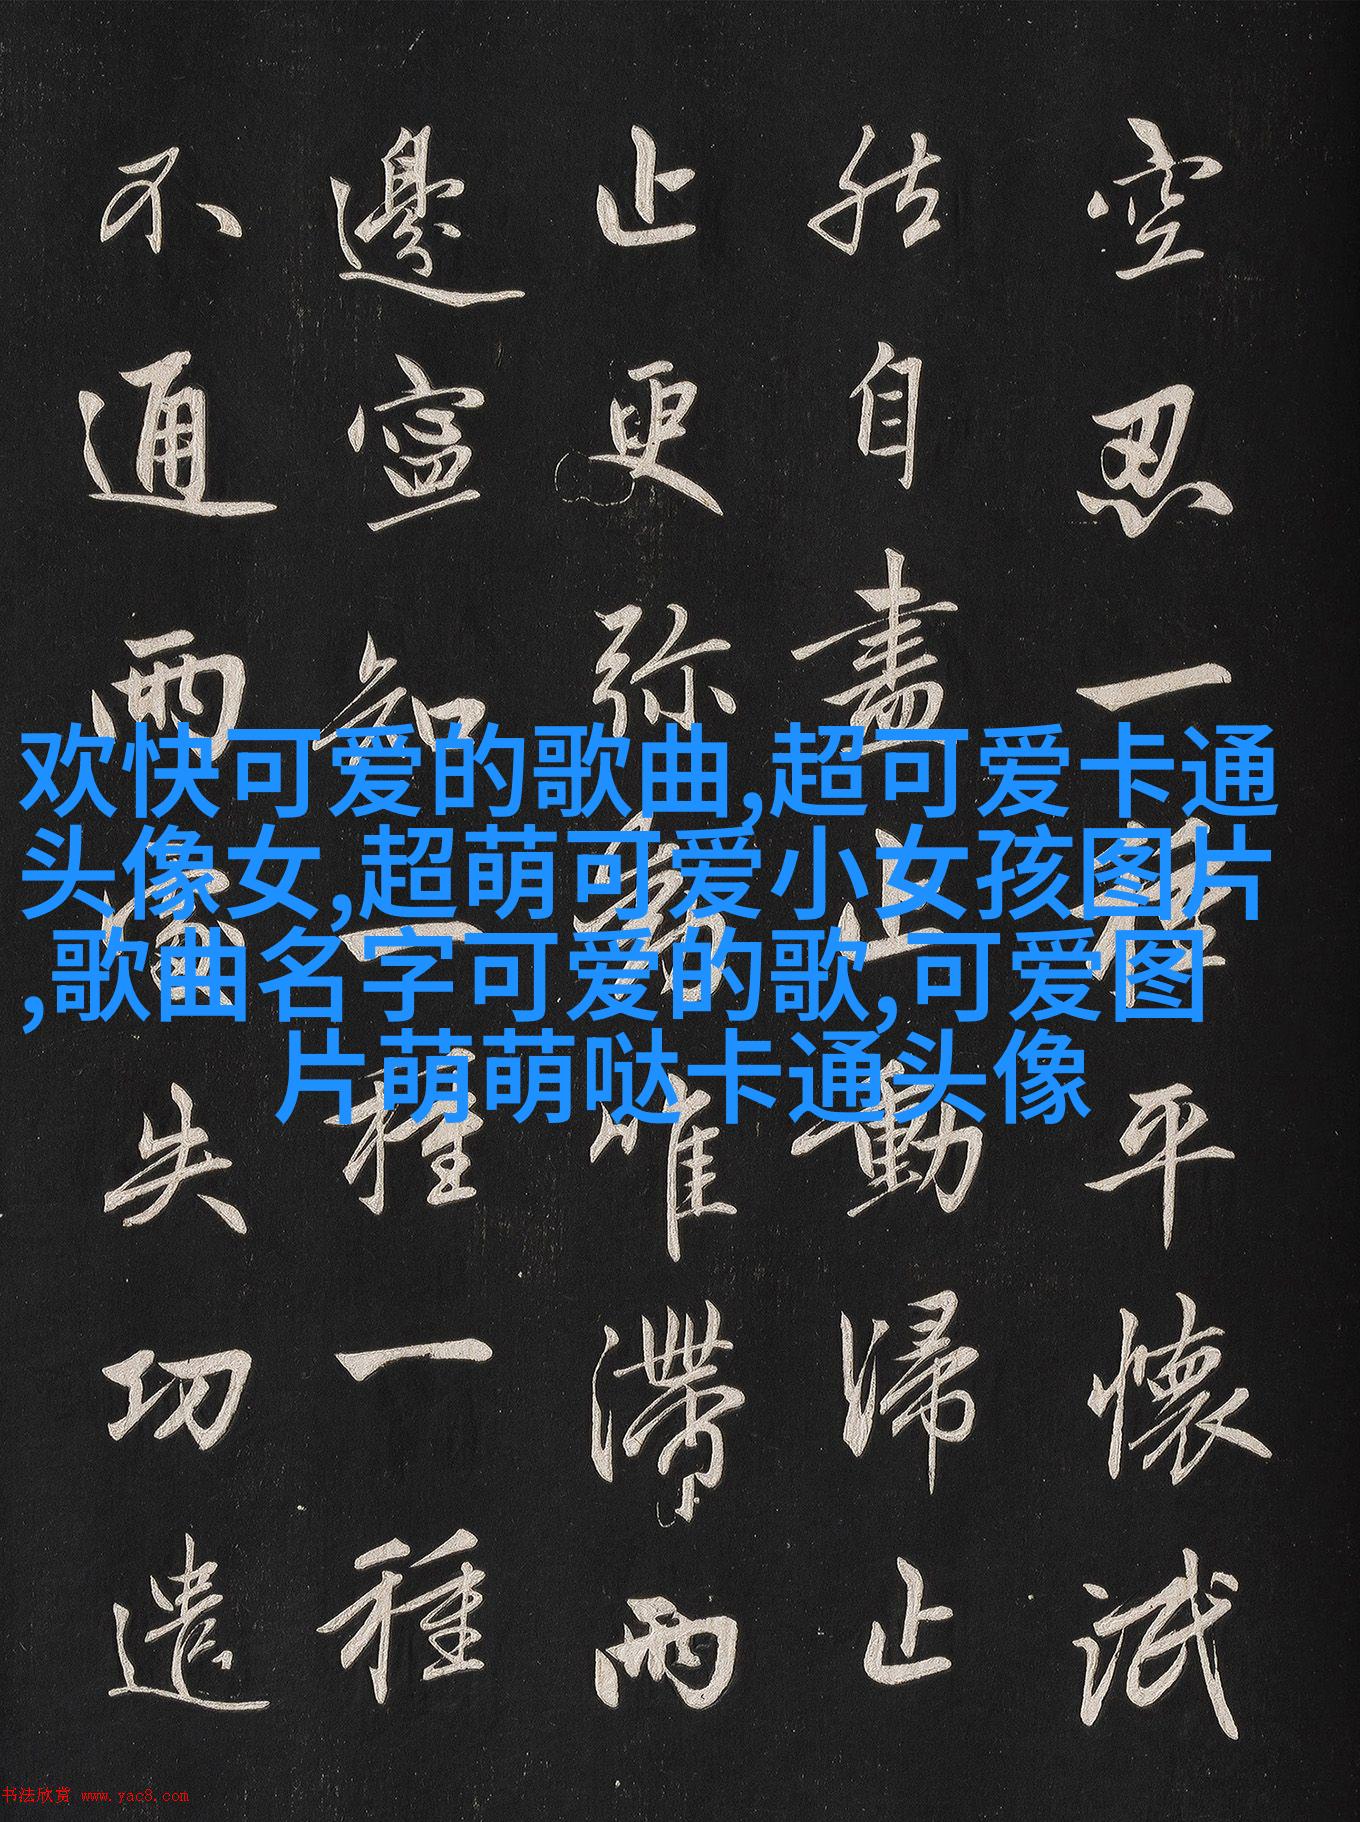 空忍一種平懷泯
然自盡止動歸止
止更彌動唯滯兩
邊寧知一種一種
不通兩處失功遣
欢快可爱的歌曲,超可爱卡通
头像女,超萌可爱小女孩图片
,歌曲名字可爱的歌,可爱图
片萌萌哒卡通头像
书法欣赏 www.yac8.com